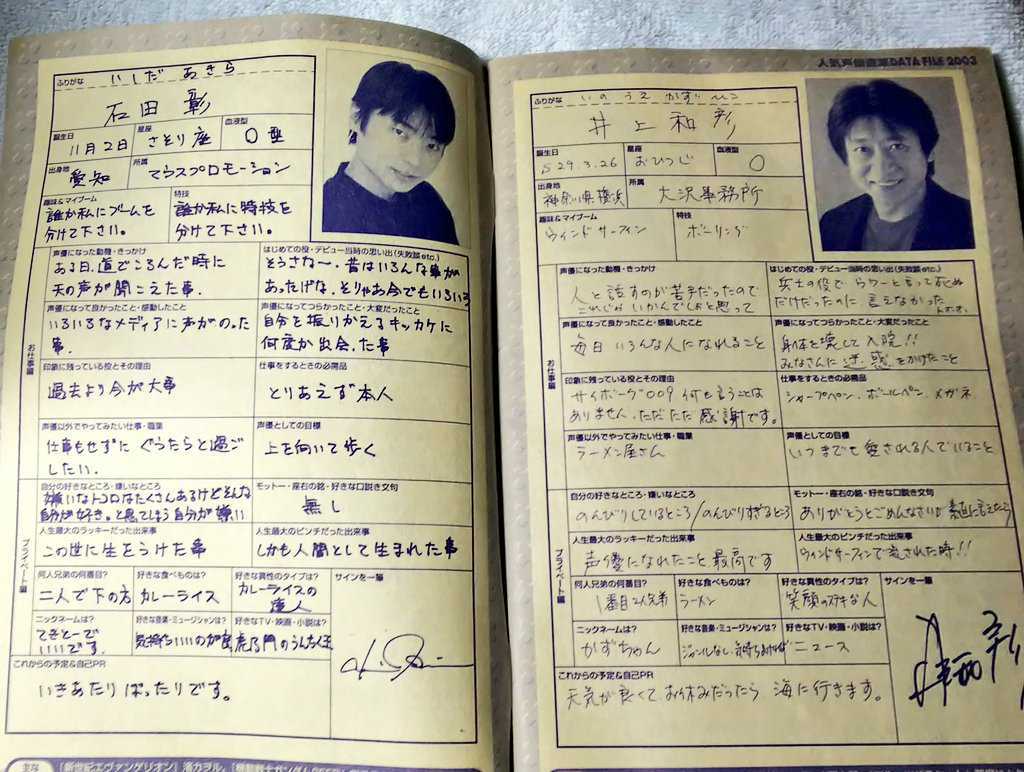 ふりがな いしだ あきら
石田 彰
誕生日 11月2日
星座 さそり座
血液型 O型
出身地 愛知
所属 てうスプロモーション
趣味&マイブーム
誰か私にブームを
分けて下さい。
特技
誰か私に特技を
分けて下さい。
お仕事編
声優になった動機・きっかけ
ある日、道でころんだ時に
天の声が聞こえた事.
はじめての役・デビュー当時の思い出(失敗談etc.)
そうさな〜、昔はいろんな事が
あったけな、とりゃあ今でもいろいろ
声優になって良かったこと・感動したこと
いろいろなメディアに声がのった
事.
声優になってつらかったこと・大変だったこと
自分を振りかえるキッカケに
何度か出会った事
印象に残っている役とその理由
過去より今が大事
仕事をするときの必需品
とりあえず本人
声優以外でやってみたい仕事・職業
仕事もせずに ぐうたらと過ご
したい.
声優としての目標
上を向いて歩く
プライベート編
自分の好きなところ・嫌いなところ
嫌いなトコロはたくさんあるけどそんな
自分が好き。と思ってしまう自分が嫌い
モットー・座右の銘・好きな口説き文句
無し
人生最大のラッキーだった出来事
この世に生をうけた事
人生最大のピンチだった出来事
しかも人間として生まれた事
何人兄弟の何番目?
二人で下の方
好きな食べものは?
カレーライス
好きな異性のタイプは?
カレーライスの
達人
サインを一筆
ニックネームは?
てきとーで
いいです.
好きな音楽・ミュージシャンは?
気持ちいいのが
好きなTV・映画・小説は?
虎乃門のうんちく王
これからの予定&自己PR
いきあたりばったりです。
主な
「新世紀エヴァンゲリオン」渚カヲル、「機動戦士ガンダム
人気声優直筆DATA FILE 2003
ふりがな いのうえ かずひこ
井上和彦
誕生日 S29.3.26
星座 おひつじ
血液型 O
出身地 神奈川県横浜
所属 大沢事務所
趣味&マイブーム
ウィンドサーフィン
特技
ボーリング
お仕事編
声優になった動機・きっかけ
人と話すのが苦手だったので
これじゃいかんでしょと思って
はじめての役・デビュー当時の思い出(失敗談etc.)
兵士の役で ウワーと言って死ぬ
だけだったのに 言えなかった
声優になって良かったこと・感動したこと
毎日 いろんな人になれること
声優になってつらかったこと・大変だったこと
身体を壊して入院!!
みなさんに迷惑をかけたこと
印象に残っている役とその理由
サイボーグ009 何も言うことは
ありません、ただただ感謝です。
仕事をするときの必需品
シャープペン、ボールペン、メガネ
声優以外でやってみたい仕事・職業
ラーメン屋さん
声優としての目標
いつまでも愛される人でいること
プライベート編
自分の好きなところ・嫌いなところ
のんびりしているところ/のんびりすぎるところ
モットー・座右の銘・好きな口説き文句
ありがとうとごめんなさいが素直に言えたら
人生最大のラッキーだった出来事
声優になれたこと、最高です
人生最大のピンチだった出来事
ウィンドサーフィンで流された時!!
何人兄弟の何番目?
1番目2人兄弟
好きな食べものは?
ラーメン
好きな異性のタイプは?
笑顔のステキな人
サインを一筆
ニックネームは?
かずちゃん
好きな音楽・ミュージシャンは?
ジャンルなし、気持ちよければ
好きなTV・映画・小説は?
ニュース
これからの予定&自己PR
天気が良くてお休みだったら 海に行きます。